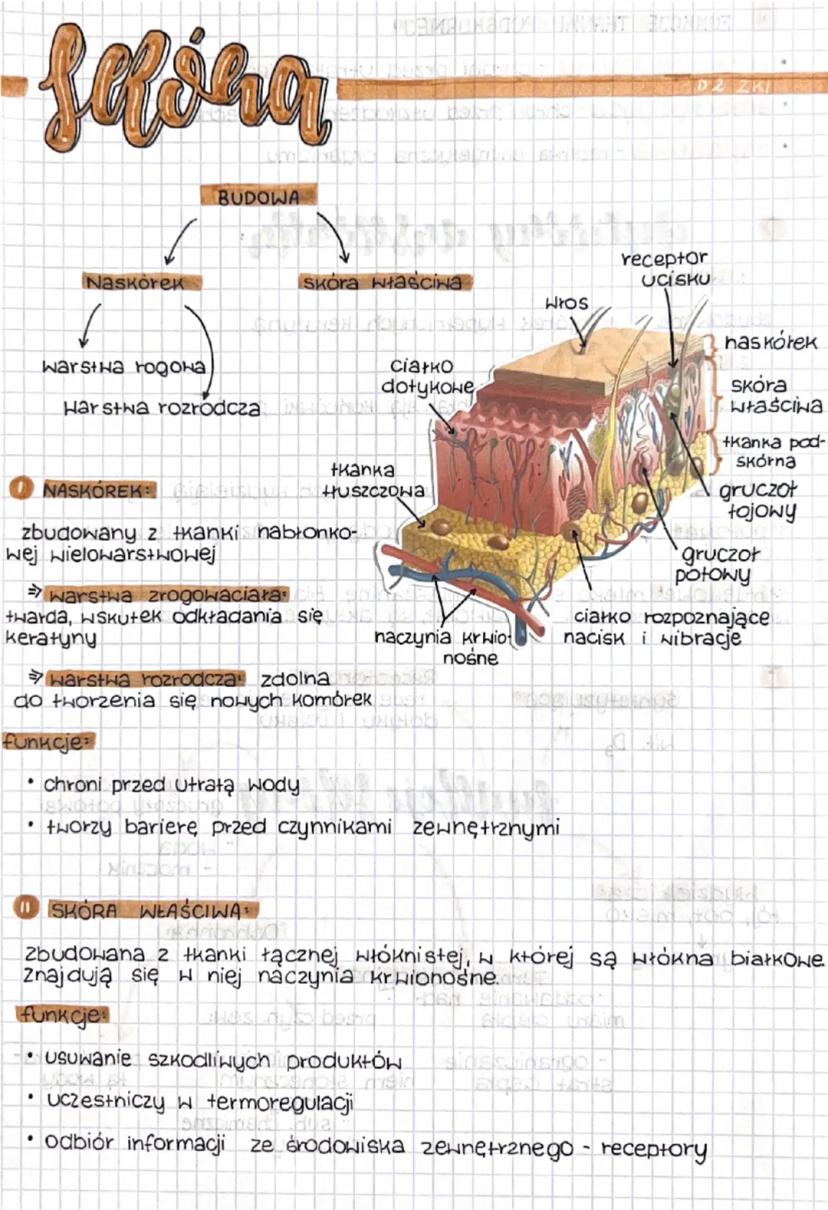 Skóra
D2 ZKI
BUDOWA
Naskórek
skóra właściwa
warstwa rogowa
warstwa rozrodcza
receptor
ucisku
włos
naskórek
ciałko
dotykowe
skóra
właściwa
tkanka pod-
skórna
tkanka
tłuszczowa
gruczoł
łojowy
gruczoł
potowy
naczynia krwio-
nośne
ciałko rozpoznające
nacisk i wibracje
I NASKÓREK:
zbudowany z tkanki nabłonko-
wej wielowarstwowej
⇒ warstwa zrogowaciała:
twarda, wskutek odkładania się
keratyny
⇒ warstwa rozrodcza: zdolna
do tworzenia się nowych komórek
funkcje:
• chroni przed utratą wody
• tworzy barierę przed czynnikami zewnętrznymi
II SKÓRA WŁAŚCIWA:
zbudowana z tkanki łącznej włóknistej, w której są włókna białkowe.
Znajdują się w niej naczynia krwionośne.
funkcje:
• usuwanie szkodliwych produktów
• uczestniczy w termoregulacji
• odbiór informacji ze środowiska zewnętrznego - receptory